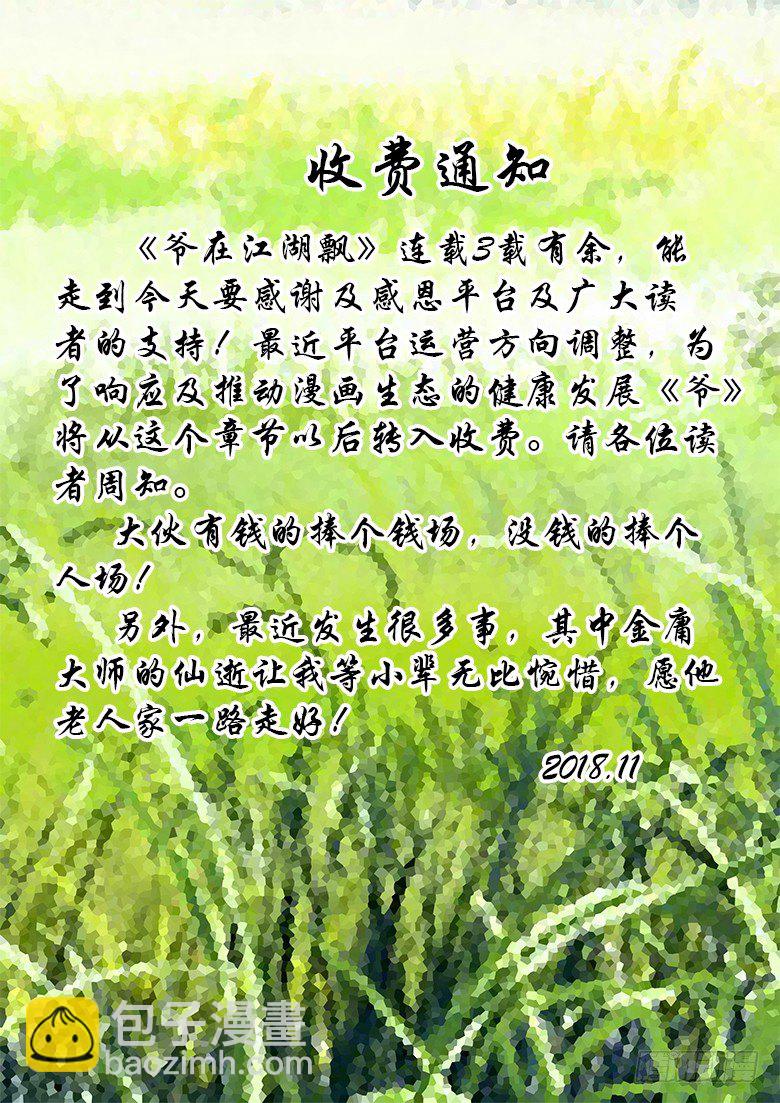 收费通知
《爷在江湖飘》连载3载有余，能
走到今天要感谢及感恩平台及广大读
者的支持！最近平台运营方向调整，为
了响应及推动漫画生态的健康发展《爷》
将从这个章节以后转入收费。请各位读
者周知。
大伙有钱的捧个钱场，没钱的捧个
人场！
另外，最近发生很多事，其中金庸
大师的仙逝让我等小辈无比惋惜，愿他
老人家一路走好！
2018.11
包子漫畫
baozimh.com